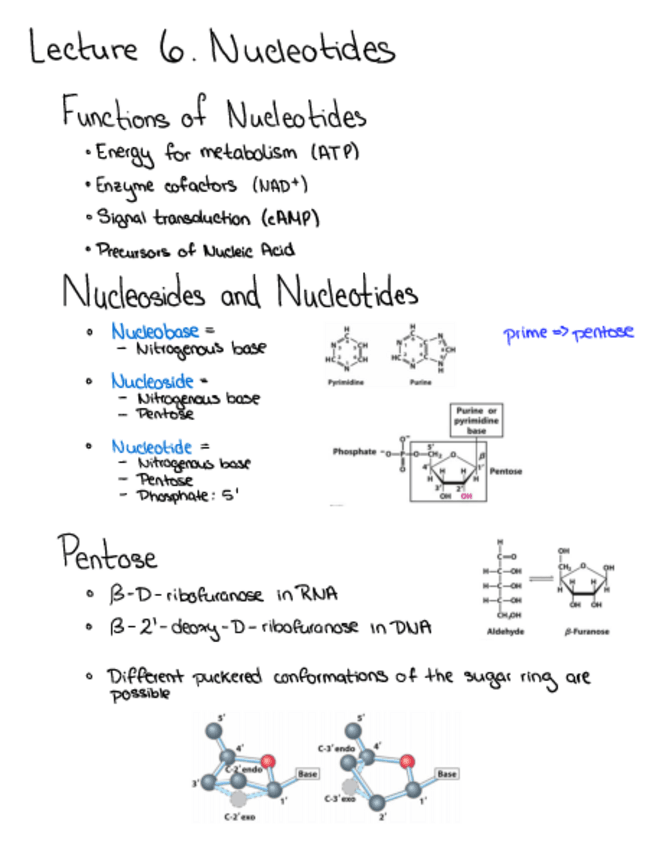 Lecture 6. Nucleotides
Functions of Nucleotides
• Energy for metabolism (ATP)
• Enzyme cofactors (NAD+)
• Signal transduction (cAMP)
• Precursors of Nucleic Acid
Nucleosides and Nucleotides
• Nucleobase =
– Nitrogenous base
Pyrimidine
Purine
prime => pentose
• Nucleoside =
– Nitrogenous base
– Pentose
• Nucleotide =
– Nitrogenous base
– Pentose
– Phosphate: 5'
Purine or
pyrimidine
base
Phosphate
Pentose
Pentose
• β-D-ribofuranose in RNA
• β-2'-deoxy-D-ribofuranose in DNA
Aldehyde
β-Furanose
• Different puckered conformations of the sugar ring are
possible
5'
4'
C-2' endo
Base
3'
1'
C-2' exo
5'
C-3' endo
4'
Base
C-3' exo
1'
2'